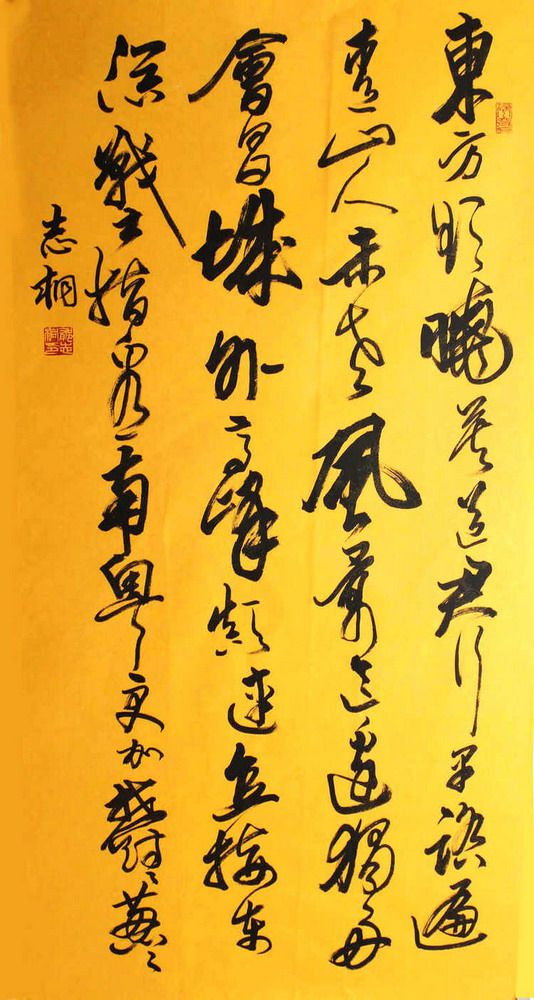 東方欲曉莫道君行早踏遍
青山人未老風景這邊獨好
會昌城外高峰顛連直接東
溟戰士指看南粵更加鬱〻蔥〻
志桐